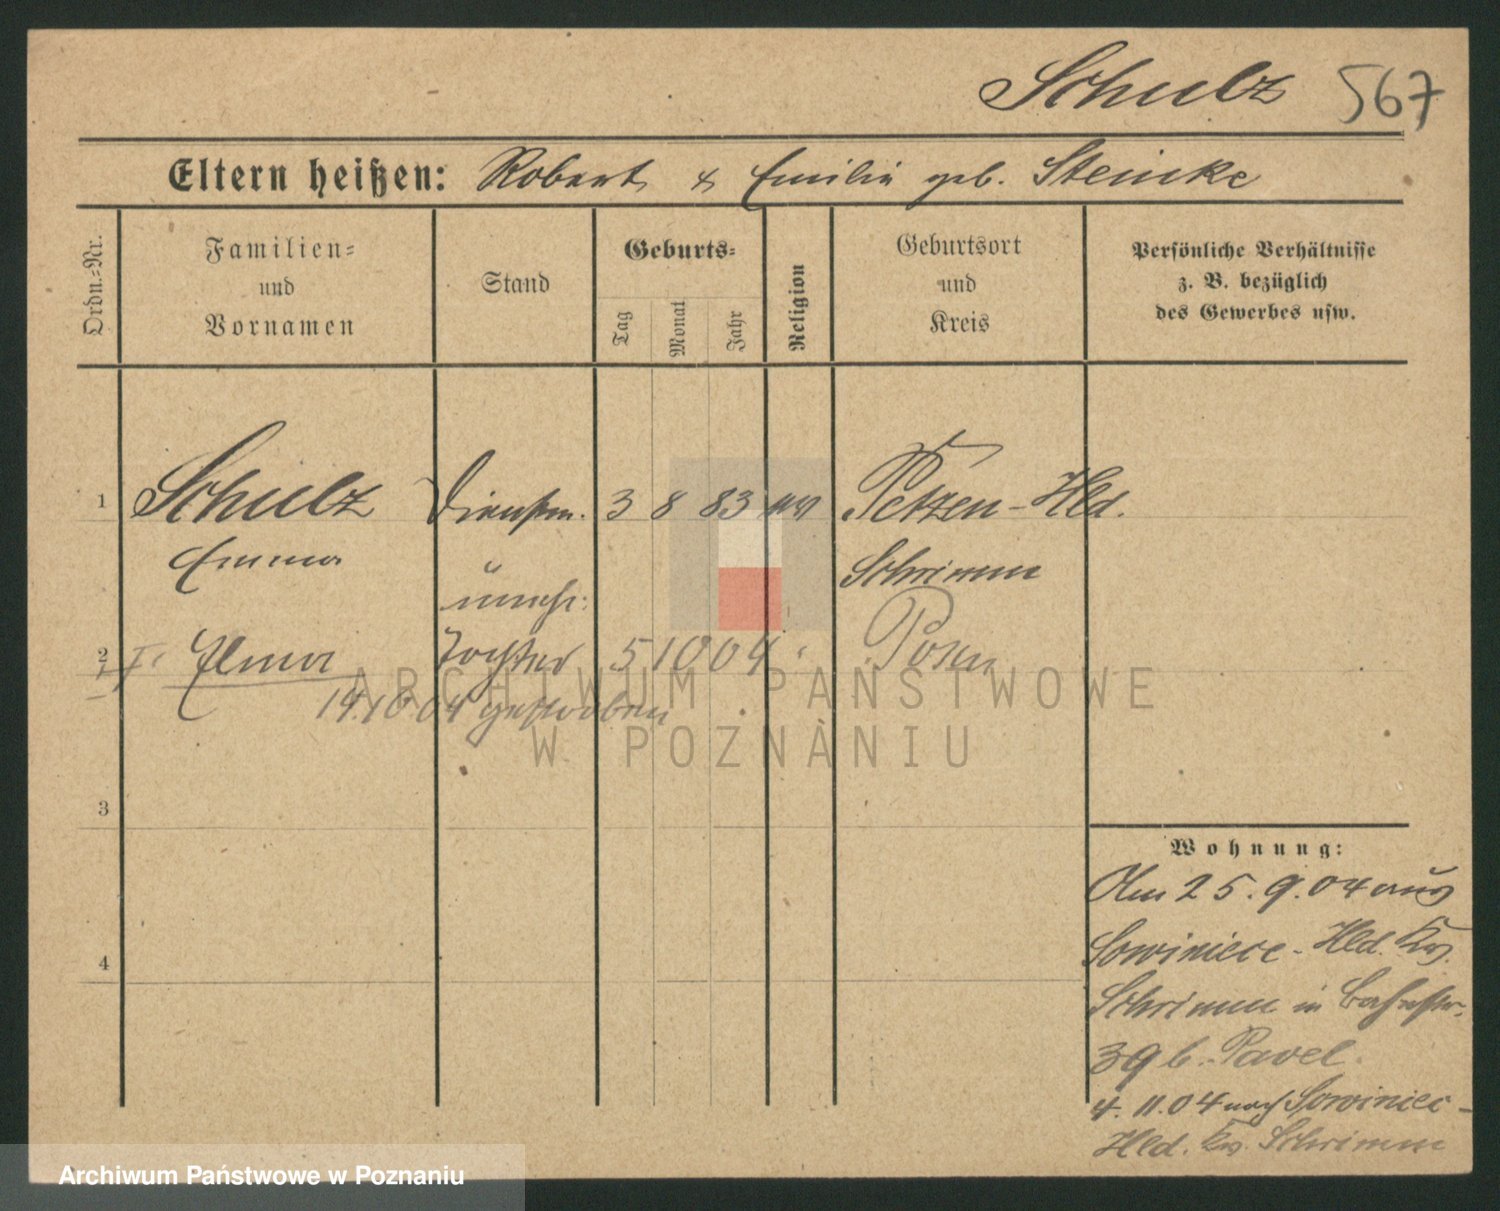 Schulz 567
Eltern heißen: Robert & Emilie geb. Steinke
Ordn.-Nr.
Familien-
und
Vornamen
Stand
Geburts-
Tag
Monat
Jahr
Religion
Geburtsort
und
Kreis
Persönliche Verhältnisse
z. B. bezüglich
des Gewerbes usw.
1 Schulz Dienstm. 3 8 83 Petzen-Hld.
Emma Schrimm
unehl:
2 Tochter 5 10 04 Posen
14.10 04 gestorben
3
4
Wohnung:
Am 25.9.04 aus
Sowiniec-Hld. Krs.
Schrimm in
39 b. Pavel.
4.11.04 nach Sowiniec-
Hld. Krs. Schrimm
ARCHIWUM PAŃSTWOWE
W POZNANIU
Archiwum Państwowe w Poznaniu